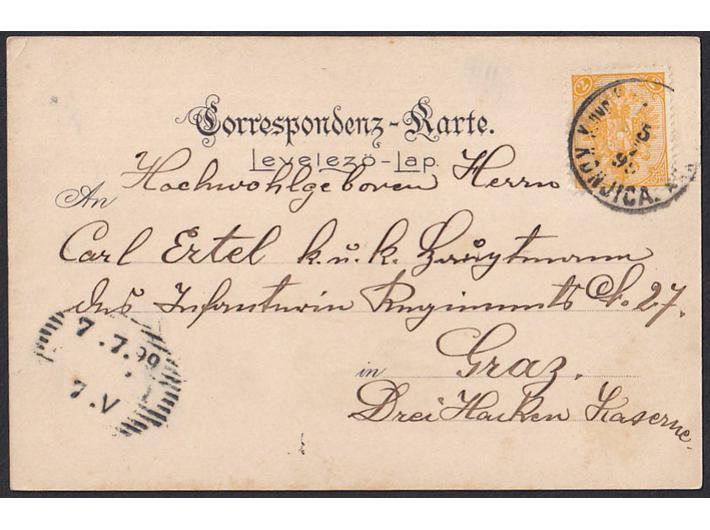 Correspondenz-Karte.
Levelező-Lap.
An Hochwohlgeboren Herrn
Carl Ertel k. u. k. Hauptmann
des Infanterie Regiments No. 27.
in Graz.
Drei Hacken Kaserne
2
KONJICA.
5
7.7.99
7.V